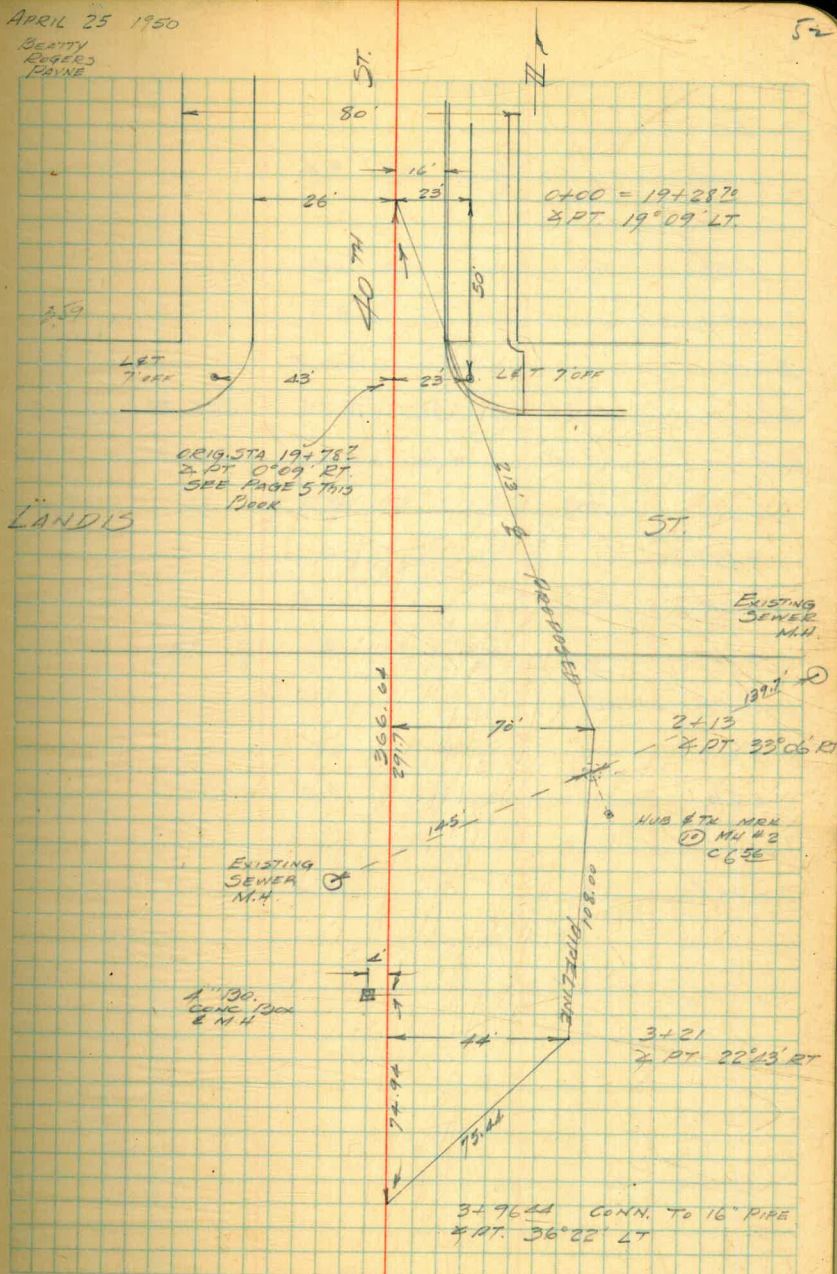 APRIL 25 1950
52
BEATTY
ROGERS
PAYNE
ST.
80'
16'
26'
23'
0+00 = 19+28.70
∠ PT. 19°09' LT.
40 TH
50'
L&T
7' OFF
43'
23'
L&T 7' OFF
ORIG. STA 19+78.7
∠ PT 0°09' RT.
SEE PAGE 5 THIS
BOOK
213'
LANDIS
ST.
℄
PROPOSED
EXISTING
SEWER
M.H.
139.7'
366.64
291.7
70'
2+13
∠ PT 33°06' RT
HUB & TK MRK
10 MH #2
C 6.56
145'
EXISTING
SEWER
M.H.
108.00
PIPELINE
4'
4" B.O.
CONC BOX
& M.H
44'
3+21
∠ PT 22°43' RT
74.94
75.44
3+96.44 CONN. TO 16" PIPE
∠ PT. 36°22' LT